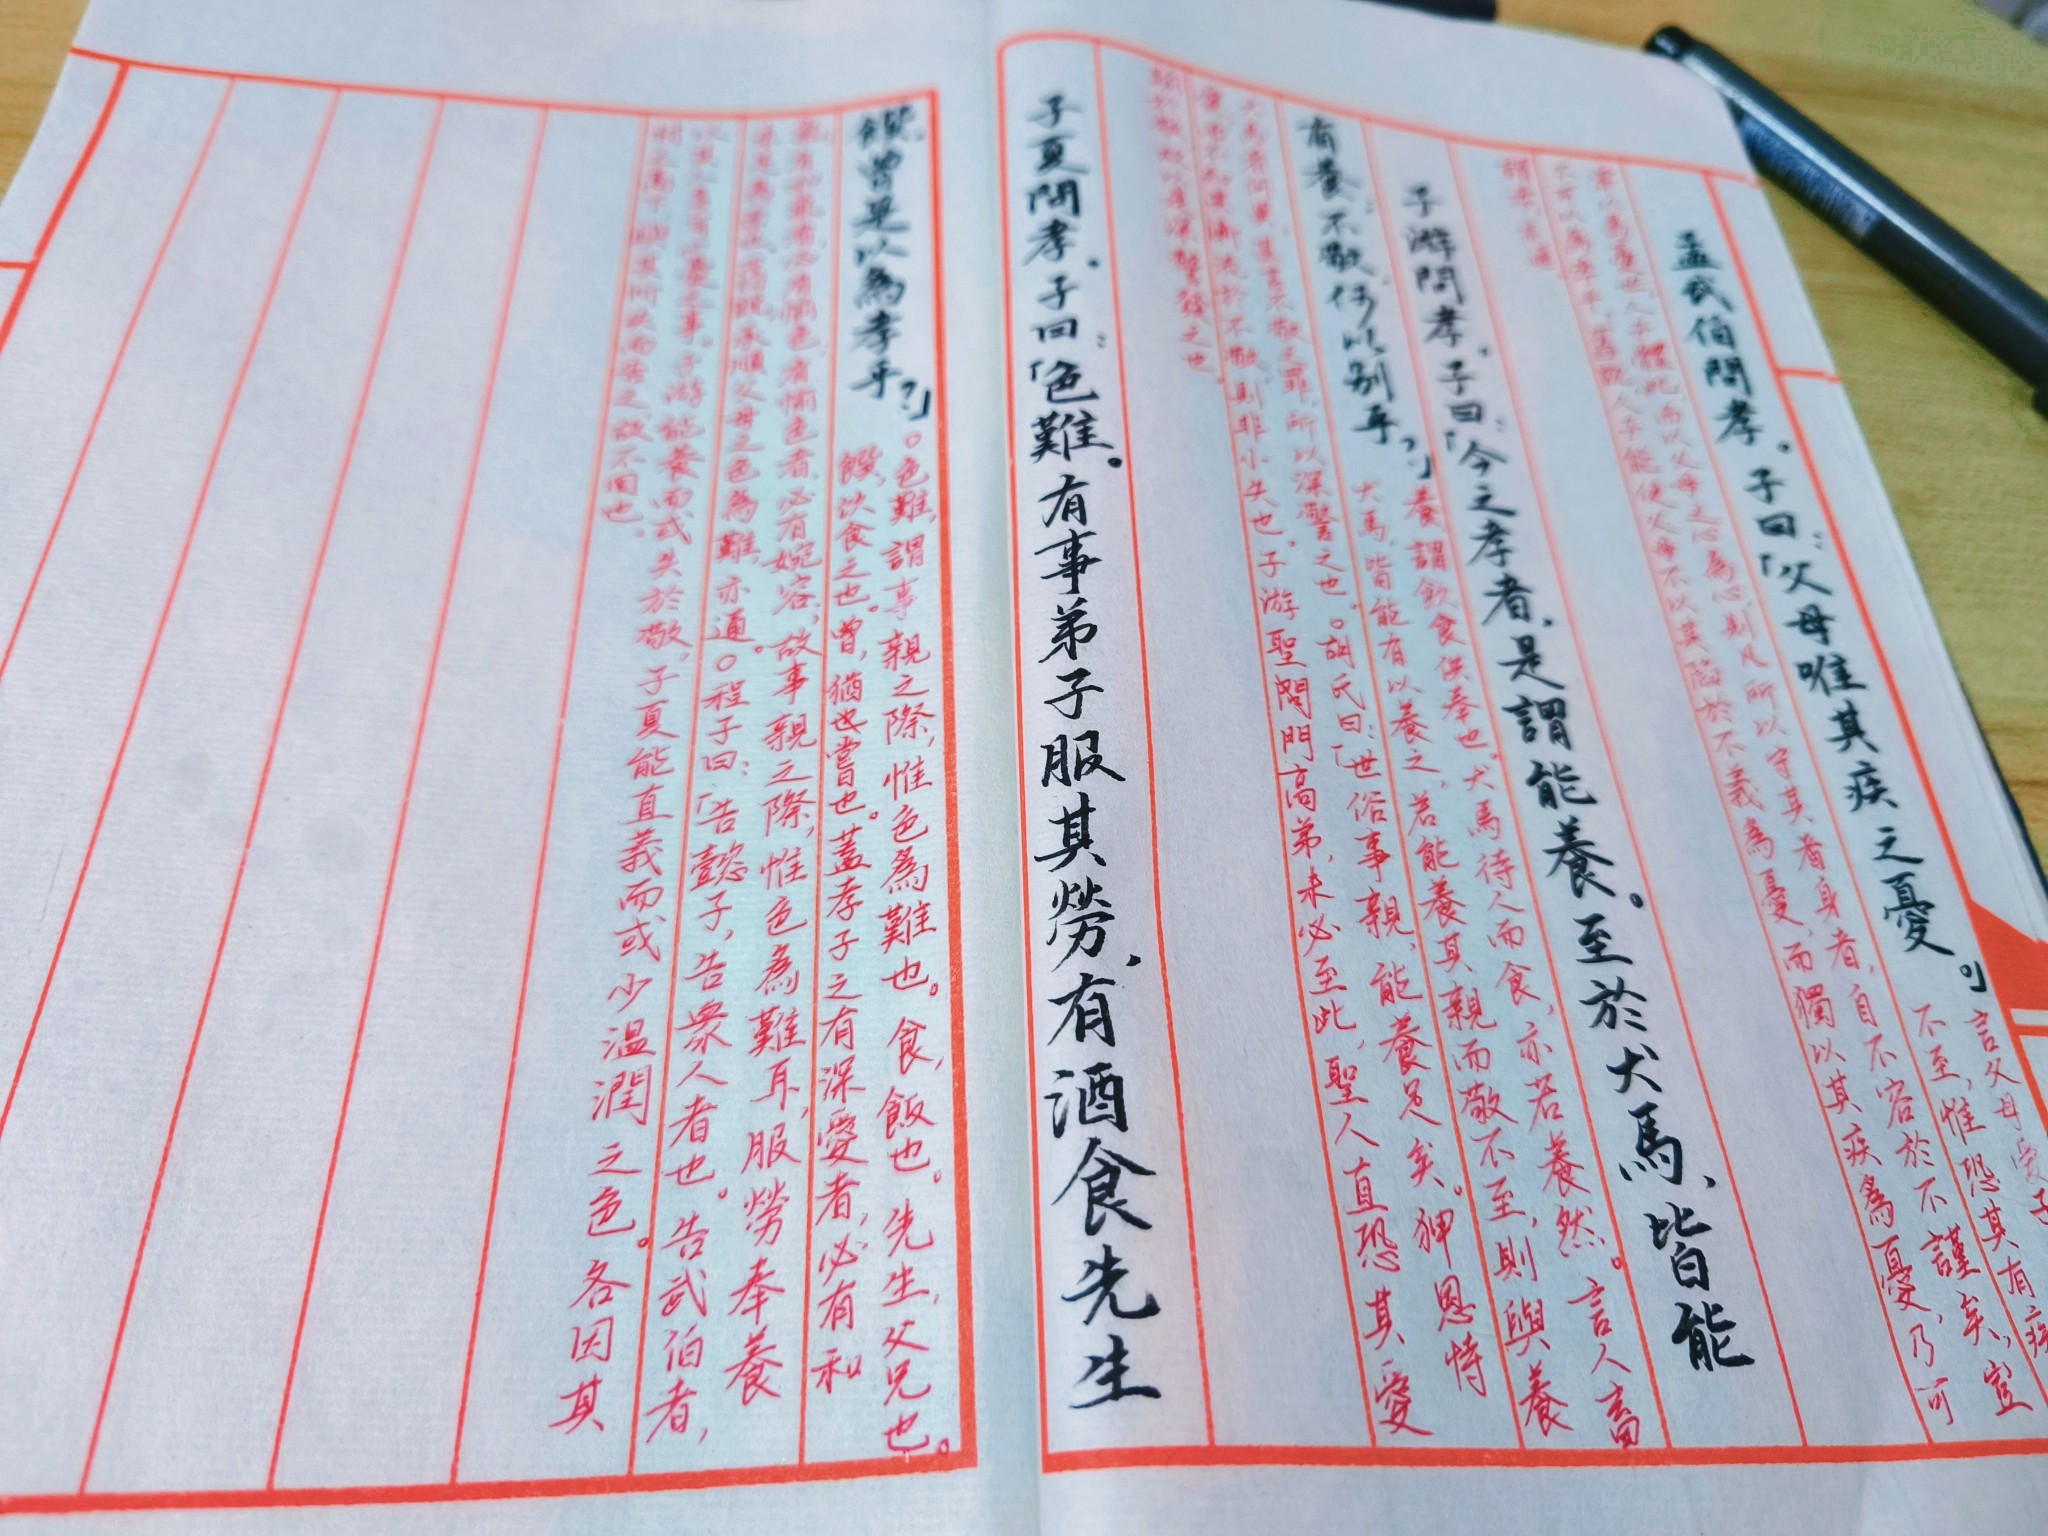 孟武伯問孝。子曰：「父母唯其疾之憂。」
言父母愛子
不至，惟恐其有疾
常以為憂也。人子體此，而以父母之心為心，則凡所以守其者身者，自不容於不謹矣，豈
不可以為孝乎。舊說，人子能使父母不以其陷於不義為憂，而獨以其疾為憂，乃可
謂孝。亦通
子游問孝。子曰：「今之孝者，是謂能養。至於犬馬、皆能
有養；不敬，何以別乎？」
養，謂飲食供奉也。犬馬待人而食，亦若養然。言人畜
犬馬，皆能有以養之，若能養其親而敬不至，則與養
犬馬者何異。甚言不敬之罪，所以深警之也。○胡氏曰：「世俗事親，能養足矣。狎恩恃
愛，而不知其漸流於不敬，則非小失也。子游聖問門高弟，未必至此，聖人直恐其愛
踰於敬，故以是深警發之也。
子夏問孝。子曰：「色難。有事弟子服其勞，有酒食先生
饌，曾是以為孝乎？」
○色難，謂事親之際，惟色為難也。食，飯也。先生，父兄也。
饌，飲食之也。曾，猶也嘗也。蓋孝子之有深愛者，必有和
氣，有和氣者，必有愉色，有愉色者，必有婉容，故事親之際，惟色為難耳，服勞奉養
未足為孝也。舊說，承順父母之色為難，亦通。○程子曰：「告懿子，告眾人者也。告武伯者，
以其人多可憂之事。子游能養而或失於敬，子夏能直義而或少溫潤之色。各因其
材之高下，與其所失而告之，故不同也。